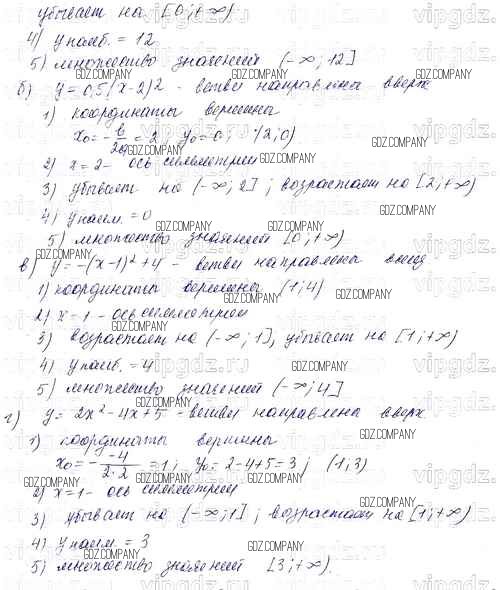 убывает на [0;+∞)
4) y наиб. = 12
5) множество значений (-∞; 12]
б) y = 0,5(x-2)² - ветви направлена вверх
1) координаты вершина
x₀ = -b/2a = 2; y₀ = 0; (2;0)
2) x = 2 - ось симметрии
3) убывает на (-∞; 2]; возрастает на [2;+∞)
4) y наим. = 0
5) множество значений [0;+∞)
в) y = -(x-1)² + 4 - ветви направлена вниз
1) координаты вершины (1;4)
2) x = 1 - ось симметрии
3) возрастает на (-∞; 1], убывает на [1;+∞)
4) y наиб. = 4
5) множество значений (-∞; 4]
г) y = 2x² - 4x + 5 - ветви направлена вверх
1) координаты вершина
x₀ = - -4/2·2 = 1; y₀ = 2-4+5 = 3; (1;3)
2) x = 1 - ось симметрии
3) убывает на (-∞; 1]; возрастает на [1;+∞)
4) y наим. = 3
5) множество значений [3;+∞).
GDZ.COMPANY
vipgdz.ru